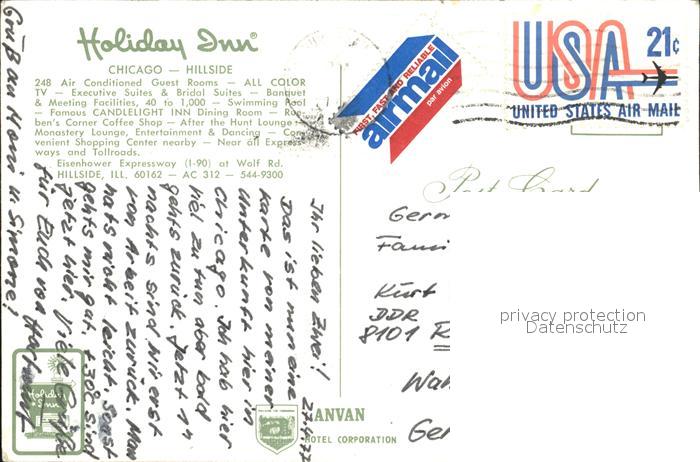 Holiday Inn®
CHICAGO — HILLSIDE
248 Air Conditioned Guest Rooms — ALL COLOR
TV — Executive Suites & Bridal Suites — Banquet
& Meeting Facilities, 40 to 1,000 — Swimming Pool
— Famous CANDLELIGHT INN Dining Room — Reu-
ben's Corner Coffee Shop — After the Hunt Lounge —
Monastery Lounge, Entertainment & Dancing — Con-
venient Shopping Center nearby — Near all Express-
ways and Tollroads.
Eisenhower Expressway (I-90) at Wolf Rd.
HILLSIDE, ILL. 60162 — AC 312 — 544-9300
FIRST, FAST AND RELIABLE
airmail
par avion
USA 21c
UNITED STATES AIR MAIL
Post Card
Ihr lieben Zwei!
Das ist nun eine
Karte von meiner
Unterkunft hier in
Chicago. Ich hab hier
viel zu tun aber bald
gehts zurück. Jetzt
nachts sind wir erst
von Arbeit zurück. Man
hats nicht leicht. Sonst
gehts mir gut. +30° sind
jetzt hier. Viele Grüße
für Euch von
Gruß an
u. Simone!
Germ
Fami
Kurt
DDR
8101 R
Wa
Ger
Holiday
Inn
ANVAN
HOTEL CORPORATION
privacy protection
Datenschutz